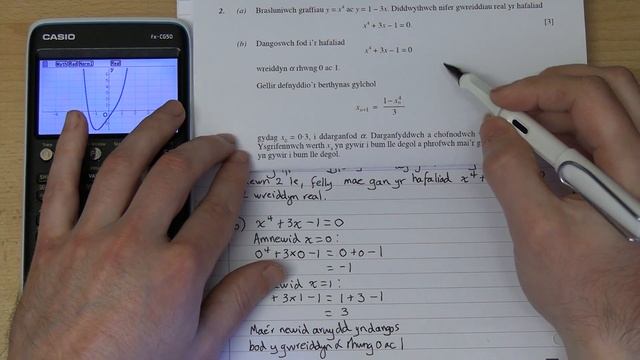 CASIO
fx-CG50
Math Rad Norm1 Real
y
2. (a) Brasluniwch graffiau y = x⁴ ac y = 1 – 3x. Diddwythwch nifer gwreiddiau real yr hafaliad
x⁴ + 3x – 1 = 0.
[3]
(b) Dangoswch fod i'r hafaliad
x⁴ + 3x – 1 = 0
wreiddyn α rhwng 0 ac 1.
Gellir defnyddio'r berthynas gylchol
xₙ₊₁ = (1 – xₙ⁴)/3
gydag x₀ = 0·3, i ddarganfod α. Darganfyddwch a chofnodwch
Ysgrifennwch werth x₄ yn gywir i bum lle degol a phrofwch mai'r
yn gywir i bum lle degol.
mewn 2 le, felly mae gan yr hafaliad x⁴+
2 wreiddyn real.
) x⁴+3x-1=0
Amnewid x=0:
0⁴+3×0-1 = 0+0-1
= -1
newid x=1:
+3×1-1 = 1+3-1
= 3
Mae'r newid arwydd yn dangos
bod y gwreiddyn α rhwng 0 ac 1